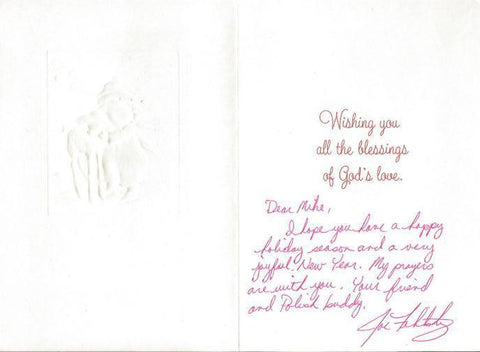 Wishing you
all the blessings
of God's love.
Dear Mike,
I hope you have a happy
holiday season and a very
joyful New Year. My prayers
are with you. Your friend
and Polish buddy,
Joe